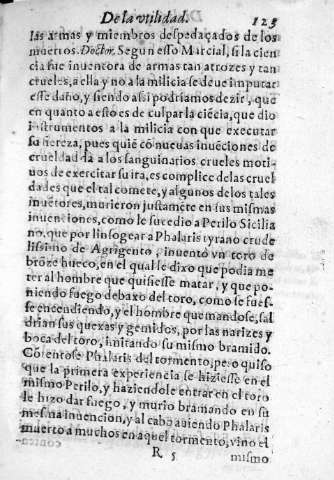 De la vtilidad. 125
las armas y miembros despedaçados de los
muertos. Doctor. Segun esso Marcial, si la cien
cia fue inuentora de armas tan atrozes y tan
crueles, a ella y no a la milicia se deue imputar
esse daño, y siendo assi podriamos dezir, que
en quanto a esto es de culpar la ciēcia, que dio
instrumentos a la milicia con que executar
su fiereza, pues quiē cō nueuas inuēciones de
crueldad da a los sanguinarios crueles moti-
uos de exercitar su ira, es complice de las cruel
dades que el tal comete, y algunos de los tales
inuētores, murieron justamēte en sus mismas
inuenciones, como le sucedio a Perilo Sicilia
no, que por linsogear a Phalaris tyrano crude
lissimo de Agrigento, inuentò vn toro de
brōze hueco, en el qual le dixo que podia me
ter al hombre que quisiesse matar, y que po-
niendo fuego debaxo del toro, como se fues-
se encendiendo, y el hombre quemandose, sal
drian sus quexas y gemidos, por las narizes y
boca del toro, imitando su mismo bramido.
Cōtentose Phalaris del tormento, pero quiso
que la primera experiencia se hiziesse en el
mismo Perilo, y haziendole entrar en el toro
le hizo dar fuego, y murio bramando en su
mesma inuencion, y al cabo auiendo Phalaris
muerto a muchos en aquel tormento, vino el
R 5 mismo